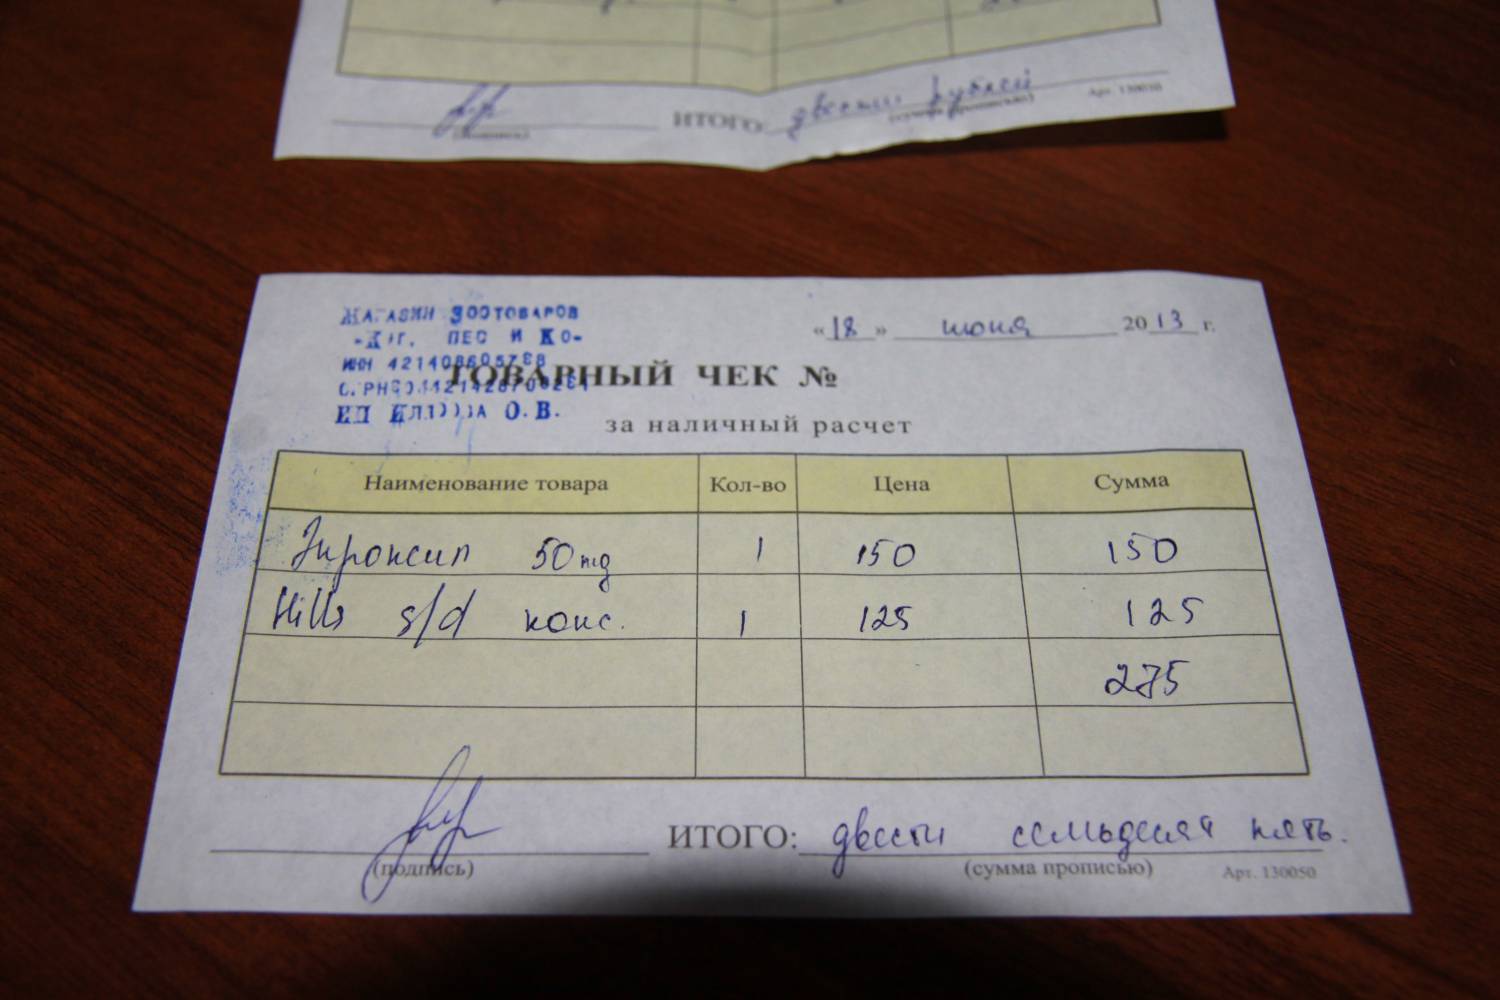 ИТОГО: двести рублей
(подпись) (сумма прописью) Арт. 130050
МАГАЗИН ЗООТОВАРОВ
ПЕС И КО-
«18» июня 2013 г.
ИНН
ТОВАРНЫЙ ЧЕК №
ИП О.В.
за наличный расчет
Наименование товара Кол-во Цена Сумма
50mg 1 150 150
Hills s/d конс. 1 125 125
275
ИТОГО: двести семьдесят пять.
(подпись) (сумма прописью) Арт. 130050